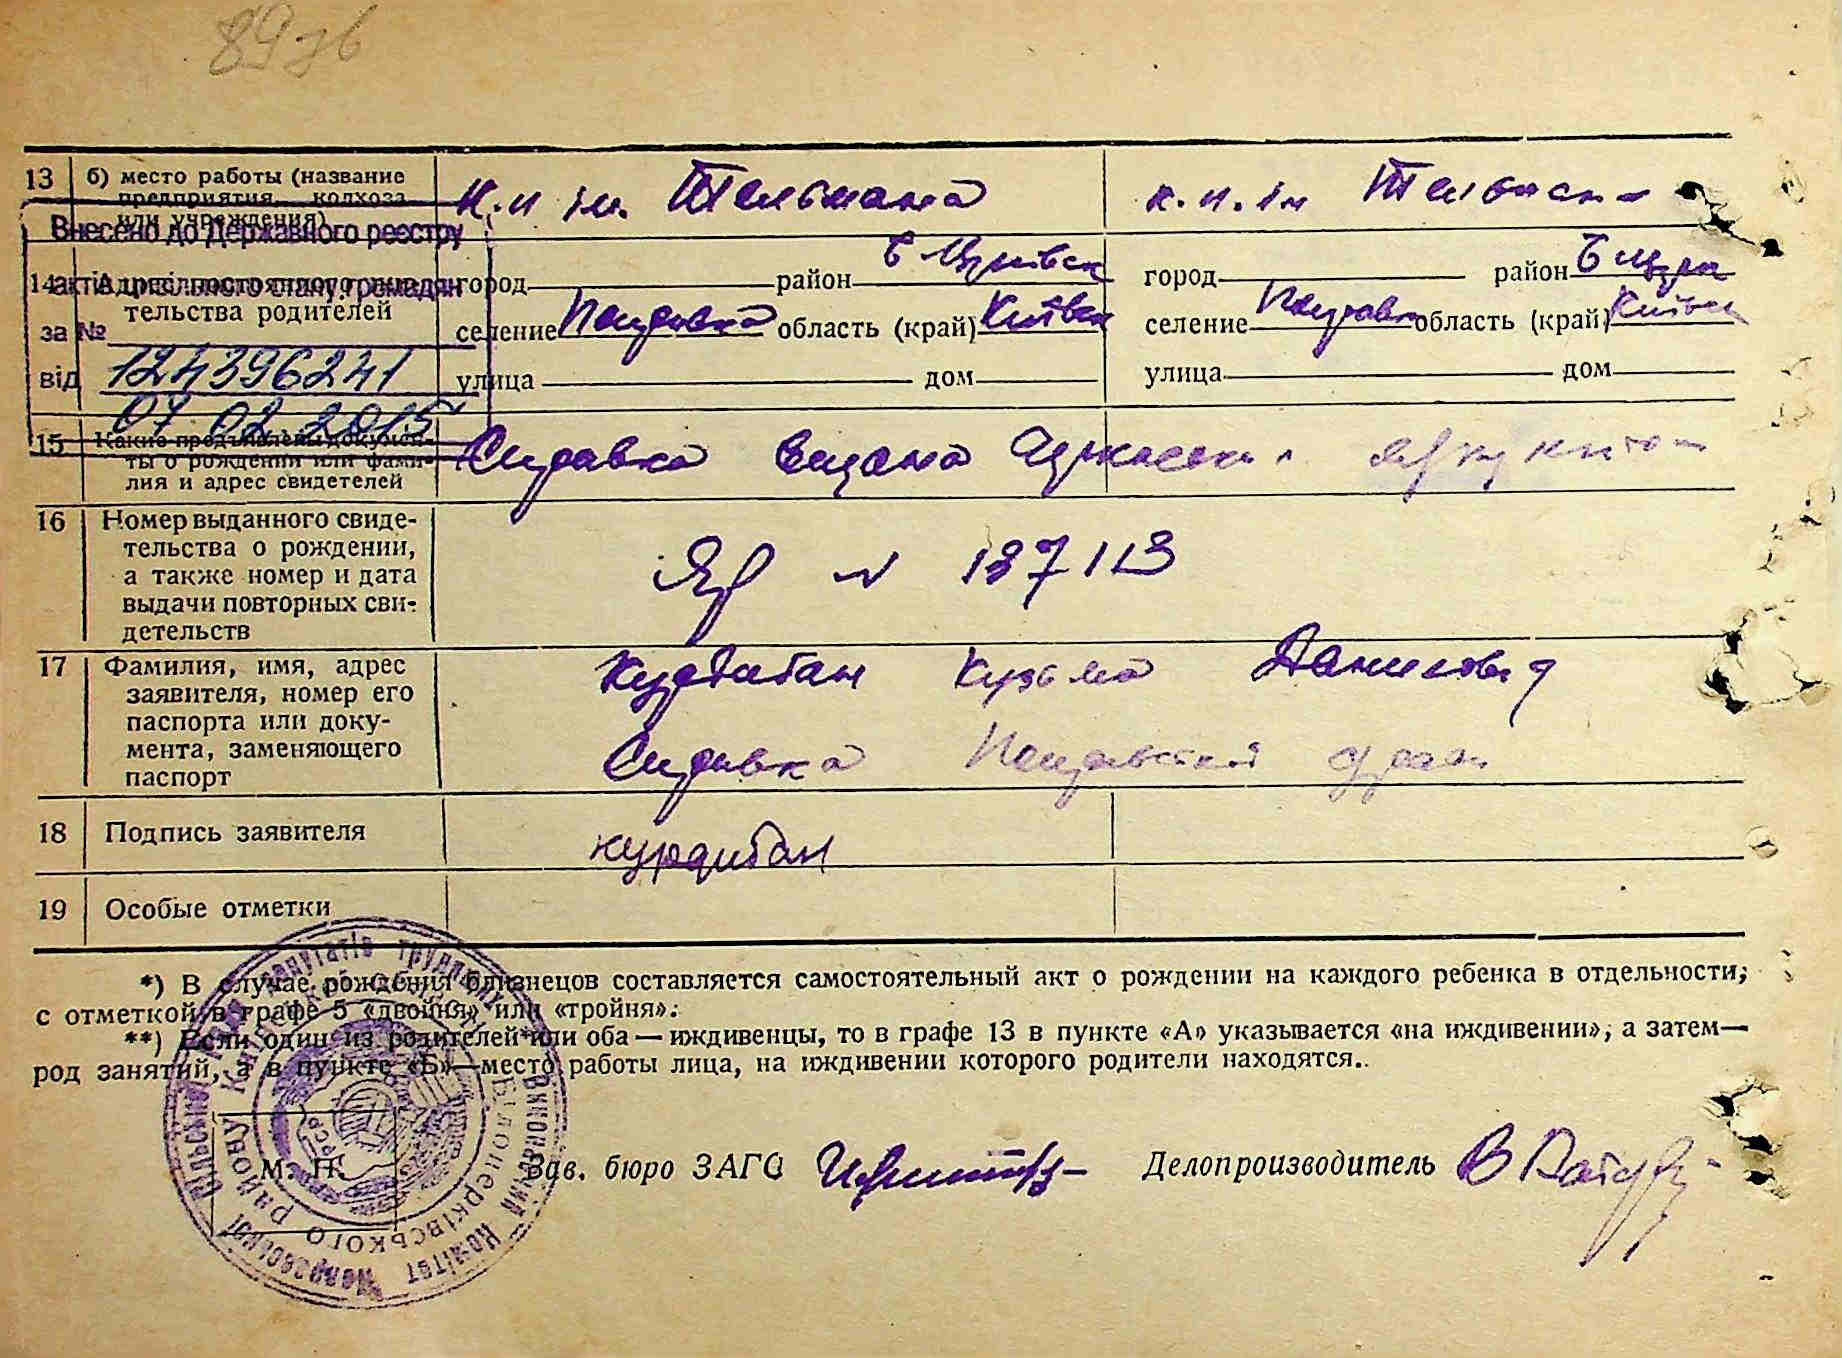 13 б) место работы (название предприятия, колхоза или учреждения)
к.п ім. Тельмана
к.п. ім Тельмана
Внесено до Державного реєстру
актів цивільного стану громадян
за №
від 124396241
07 02 2015
14 Адрес постоянного жительства родителей
город район Б Церківськ
селение область (край) Київськ
улица дом
город район Б Церк
селение область (край) Київськ
улица дом
15 Какие предъявлены документы о рождении или фамилия и адрес свидетелей
Справка видана
16 Номер выданного свидетельства о рождении, а также номер и дата выдачи повторных свидетельств
N 187113
17 Фамилия, имя, адрес заявителя, номер его паспорта или документа, заменяющего паспорт
Курдибан Кузьма Данилович
Справка
18 Подпись заявителя
Курдибан
19 Особые отметки
*) В случае рождения близнецов составляется самостоятельный акт о рождении на каждого ребенка в отдельности,
с отметкой в графе 5 «двойня» или «тройня».
**) Если один из родителей или оба — иждивенцы, то в графе 13 в пункте «А» указывается «на иждивении», а затем—
род занятий, а в пункте «Б»—место работы лица, на иждивении которого родители находятся.
М. П.
Зав. бюро ЗАГС
Делопроизводитель
Виконавчий Комітет
сільської Ради депутатів трудящих
Білоцерківського району Київської області